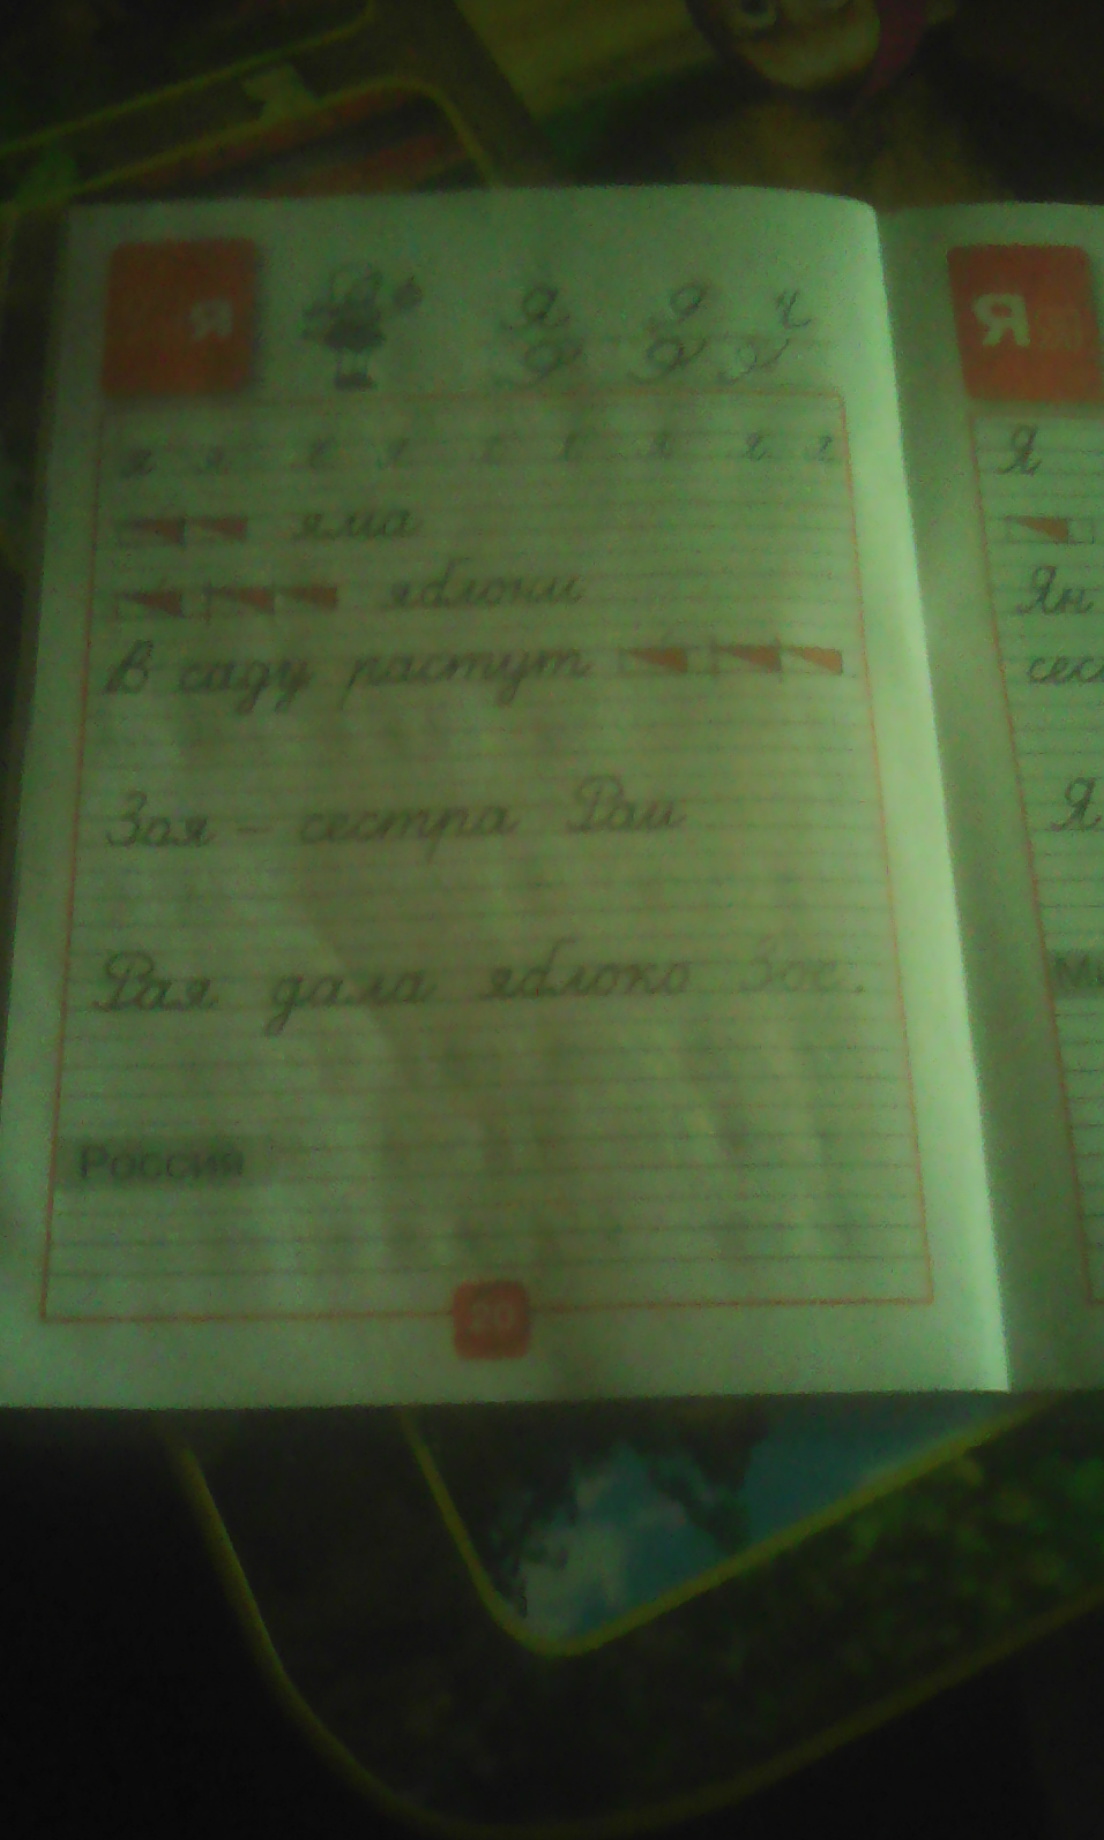 я
я я
яма
яблоки
В саду растут
Зоя – сестра Раи
Рая дала яблоко Зое.
Россия
20
Я
Я
Ян
сес
Я